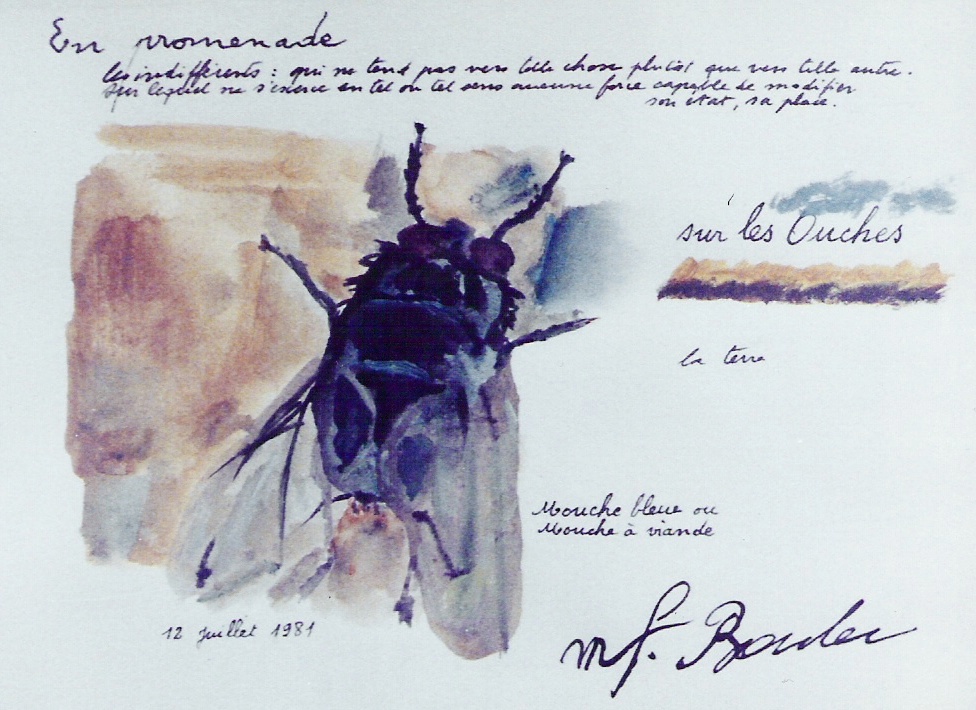 En promenade
les indifférents : qui ne tend pas vers telle chose plutôt que vers telle autre.
sur lequel ne s'exerce en tel ou tel sens aucune force capable de modifier
son état, sa place.
sur les Ouches
la terre
Mouche bleue ou
Mouche à viande
12 juillet 1981
mf.